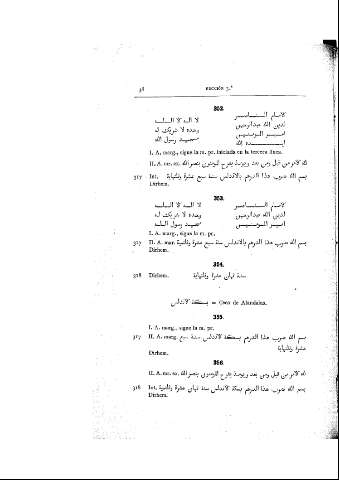 48 SECCIÓN 3.ª
352.
الامام النــاصــر لا اله الا اللــه
لدين الله عبدالرحمن وحده لا شريك له
امــير المومنــين محمــد رسول الله
ايــده الله
I. A. marg., sigue la m. pr. iniciada en la tercera línea.
II. A. m. ex. لله الامر من قبل ومن بعد ويومئذ يفرح المومنون بنصر الله
317 Int. بسم الله ضرب هذا الدرهم بالاندلس سنة سبع عشرة وثلثماية
Dirhem.
353.
الامام النــاصــر لا اله الا اللــه
لدين الله عبدالرحمن وحده لا شريك له
امــير المومنــين محمــد رسول اللــه
I. A. marg., sigue la m. pr.
317 II. A. mar. بسم الله ضرب هذا الدرهم بالاندلس سنة سبع عشرة وثلثماية
Dirhem.
354.
318 Dirhem. سنة ثمان عشرة وثلثماية
بــسكة الاندلس = Ceca de Alandalus.
355.
I. A. marg., sigue la m. pr.
317 II. A. marg. بسم الله ضرب هذا الدرهم بــسكــة الاندلس سنة سبع
عشرة وثلثماية
Dirhem.
356.
II. A. m. ex. لله الامر من قبل ومن بعد ويومئذ يفرح المومنون بنصر الله
318 Int. بسم الله ضرب هذا الدرهم بسكة الاندلس سنة ثمان عشرة وثلثماية
Dirhem.